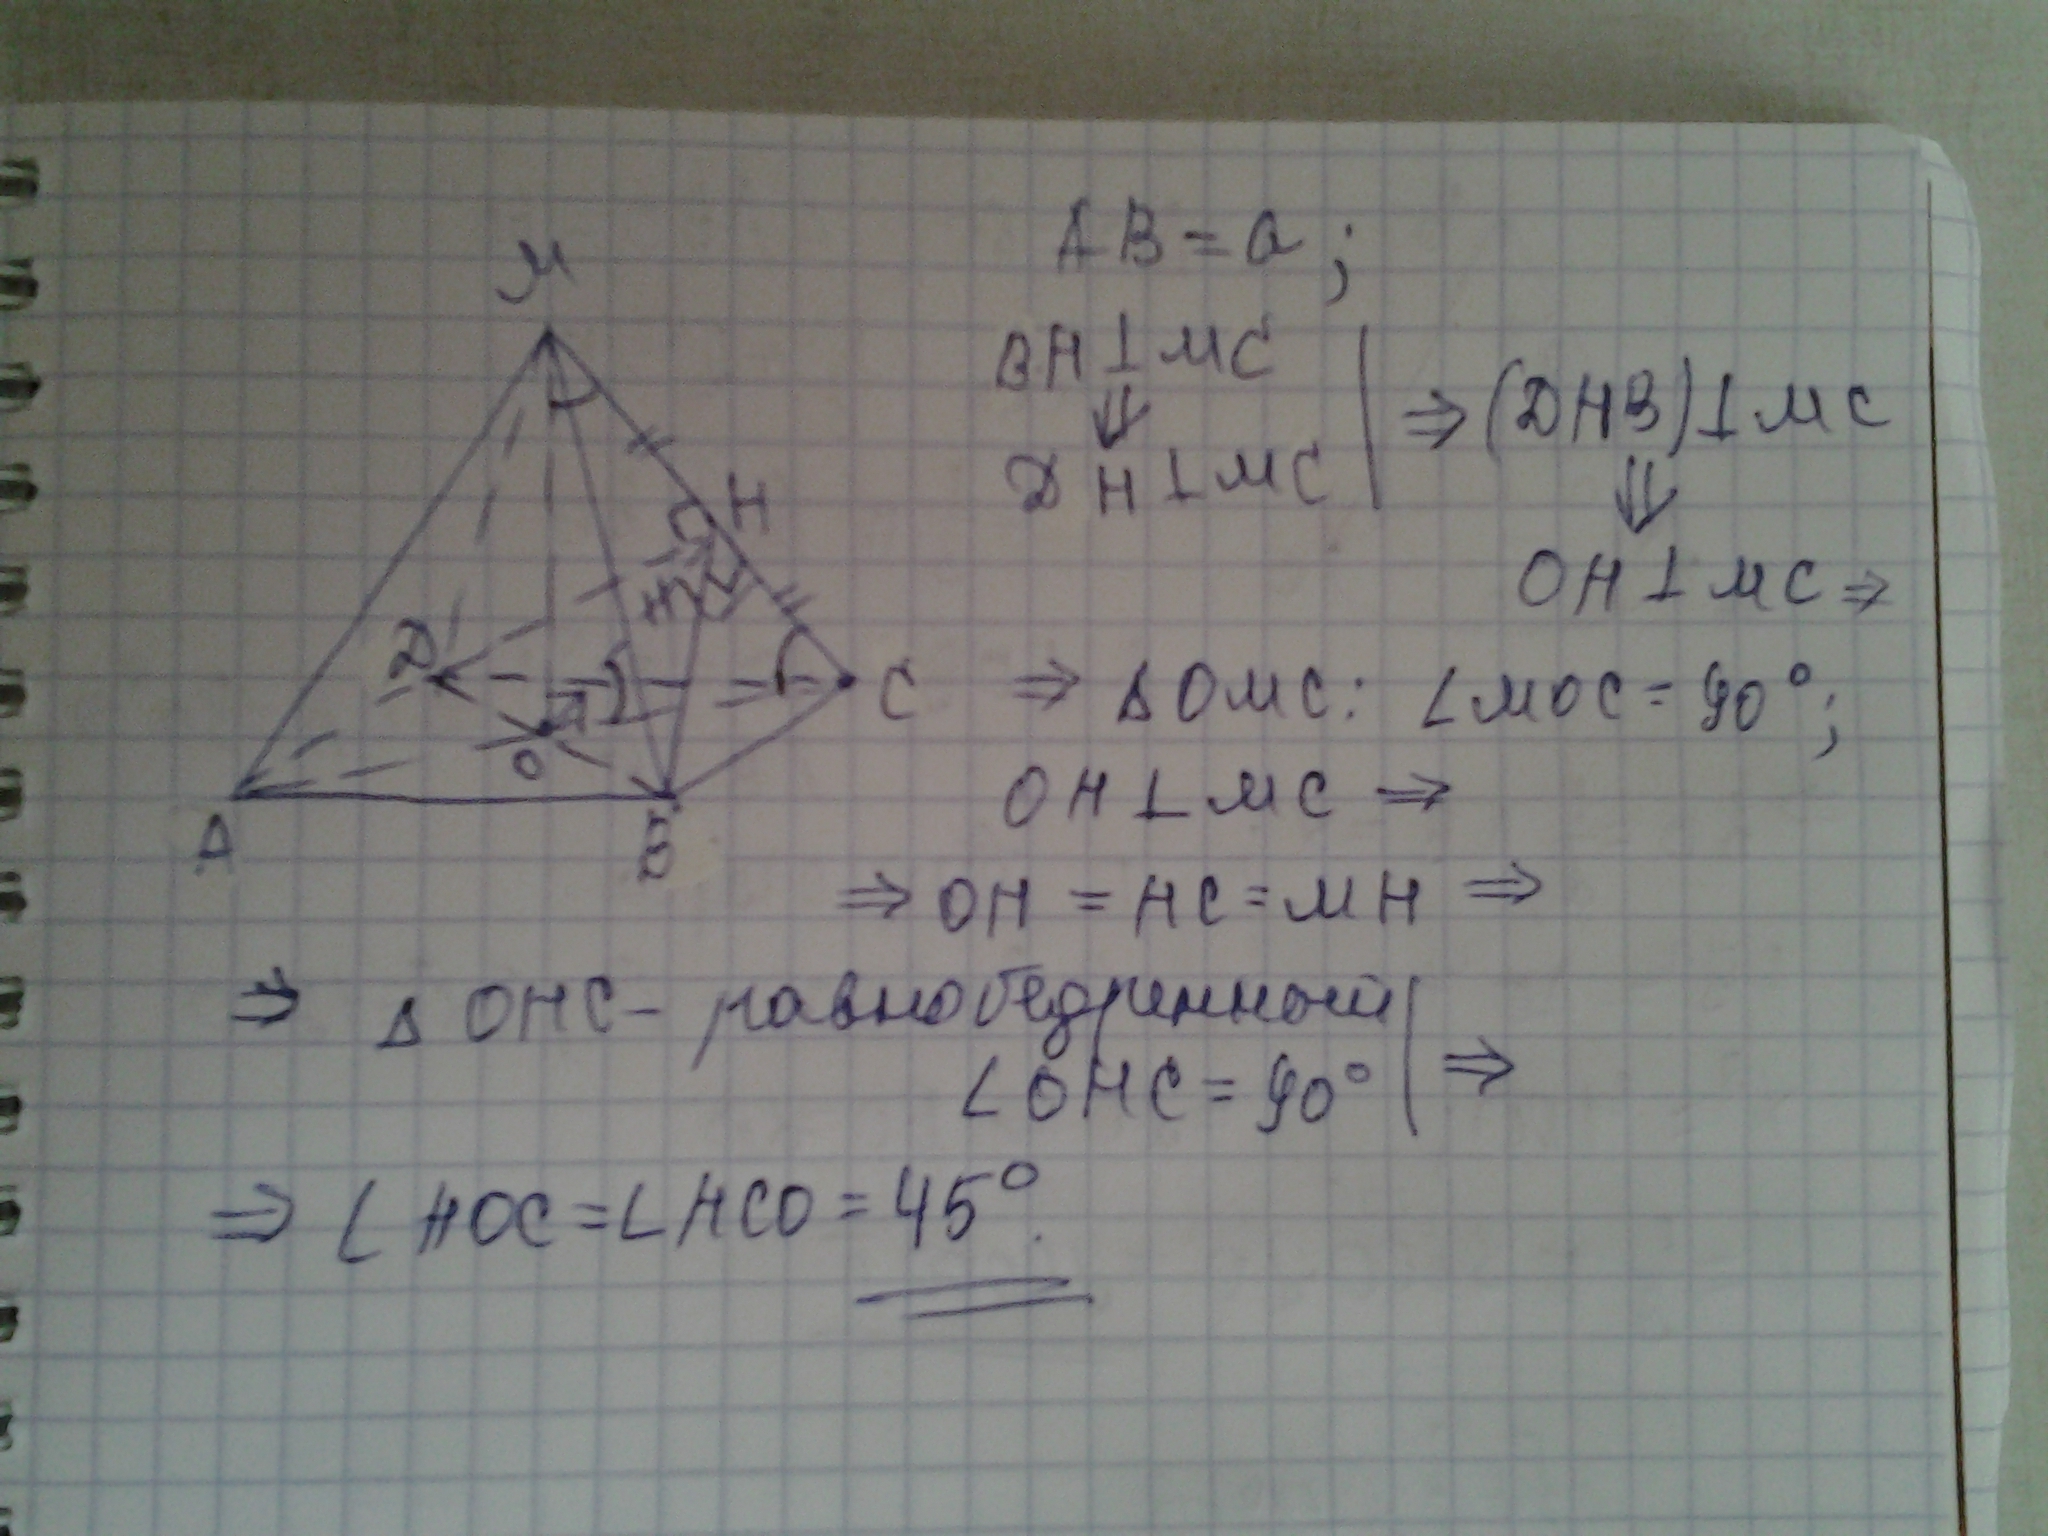 AB = a ;
M
BH ⊥ MC
⇓
DH ⊥ MC
⇒ (DHB) ⊥ MC
⇓
H
OH ⊥ MC ⇒
D
C
⇒ Δ OMC: ∠MOC = 90°;
O
A
B
OH ⊥ MC ⇒
⇒ OH = HC = MH ⇒
⇒ Δ OHC – равнобедренный
∠OHC = 90° ⇒
⇒ ∠HOC = ∠HCO = 45°.